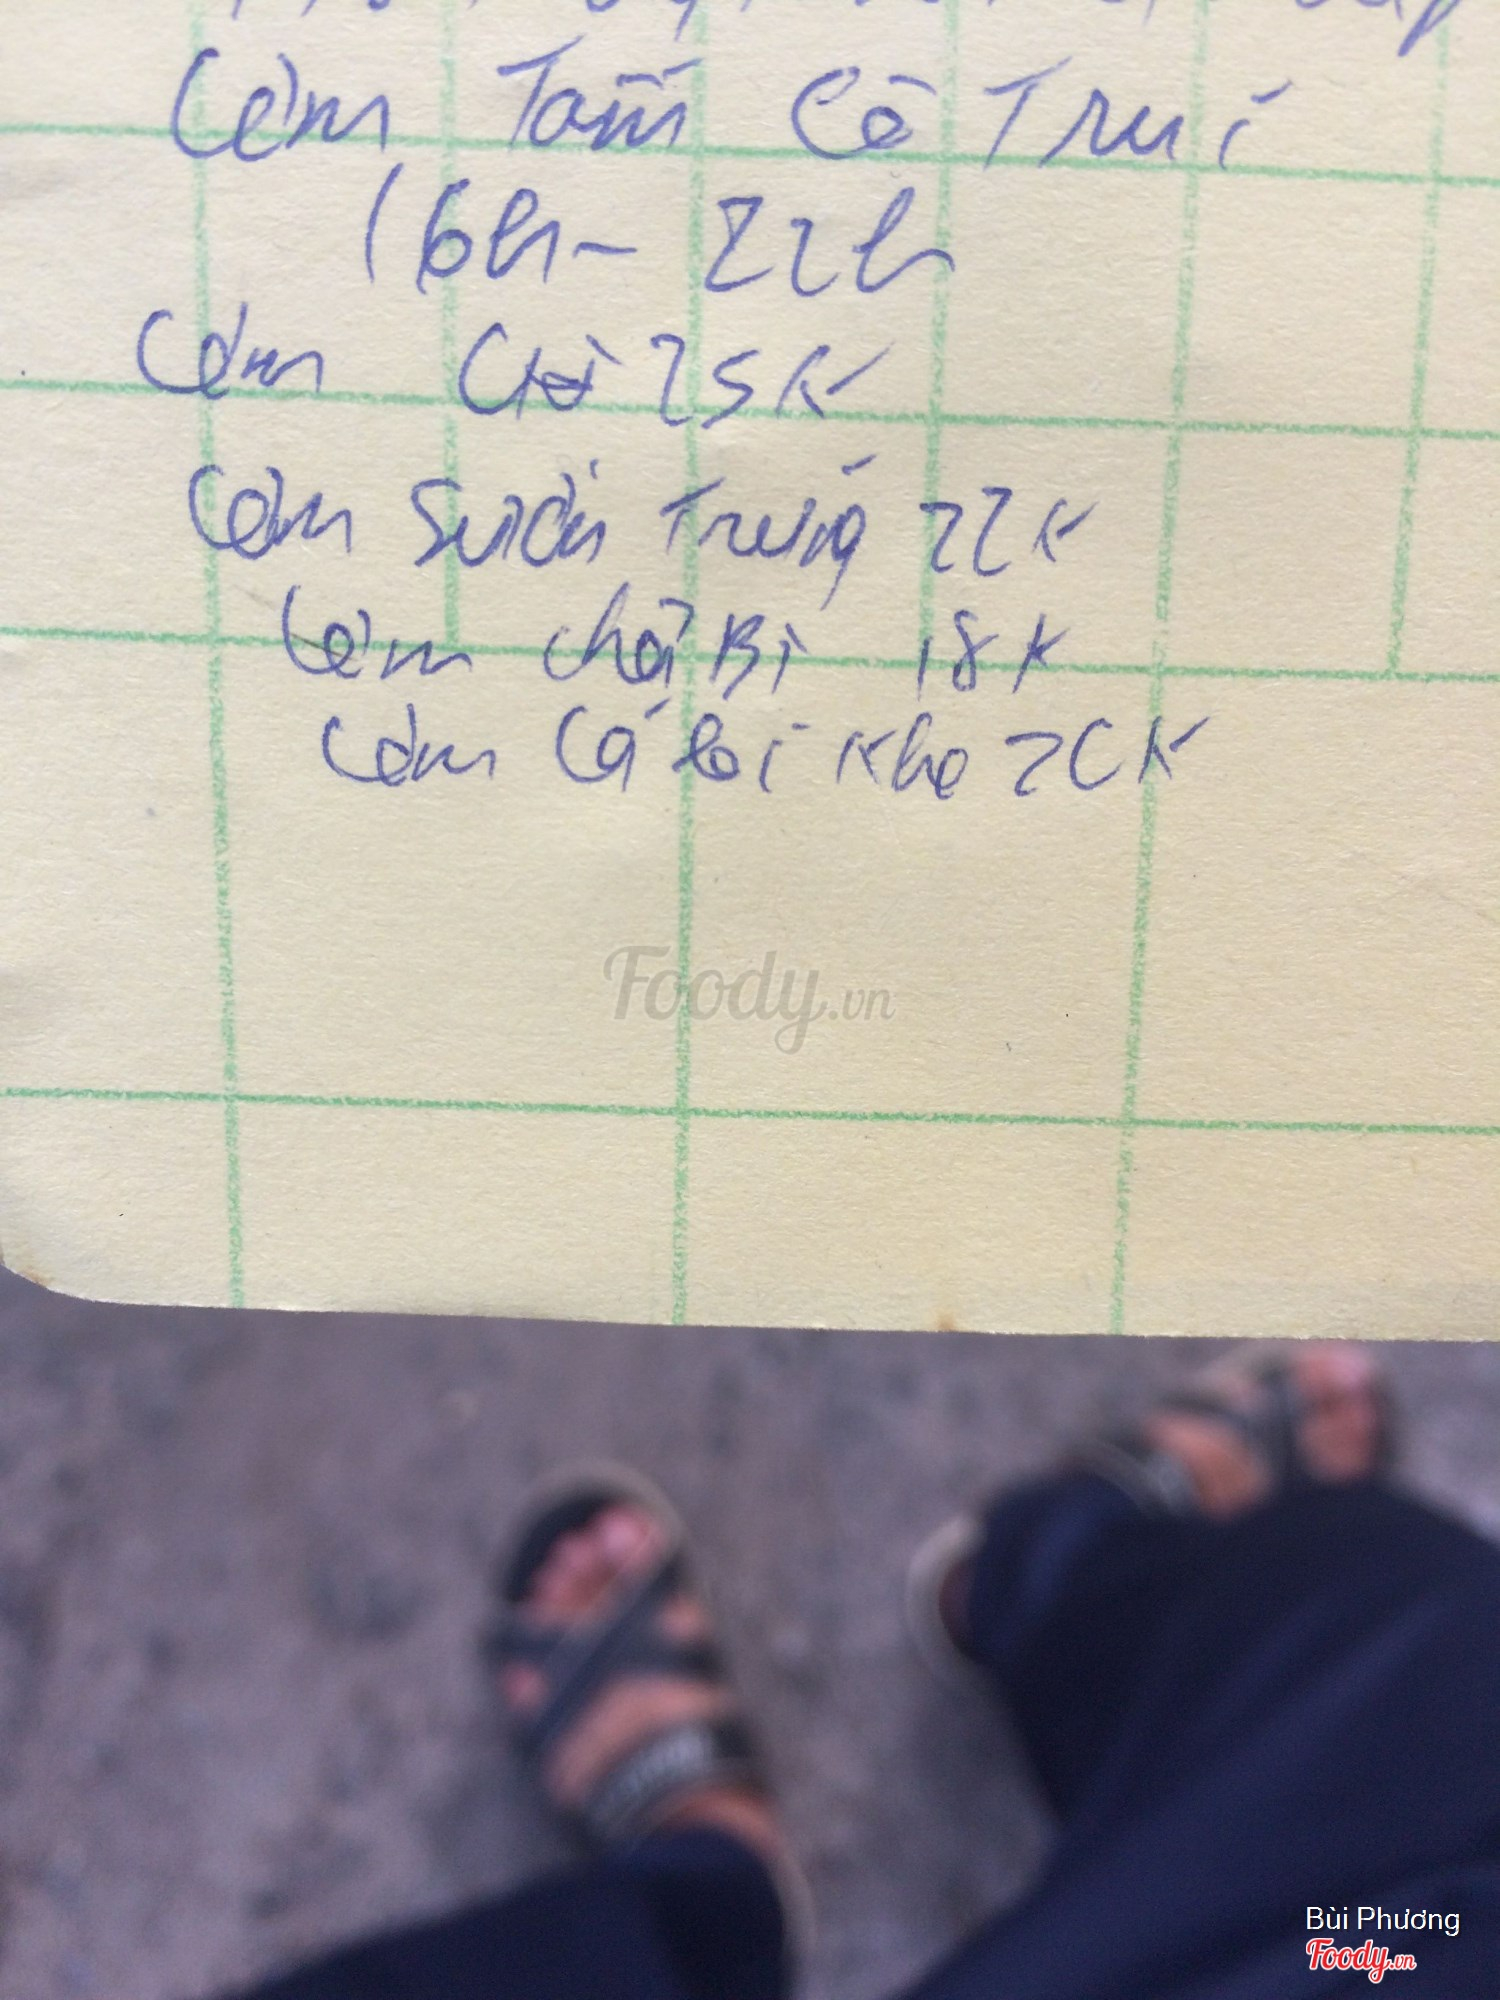 Cơm Tấm Cô Trúc
16h - 22h
Cơm 25K
Cơm Sườn Trứng 22K
Cơm chả Bì 18K
Cơm Cá bi kho 20K
Foody.vn
Bùi Phương
Foody.vn